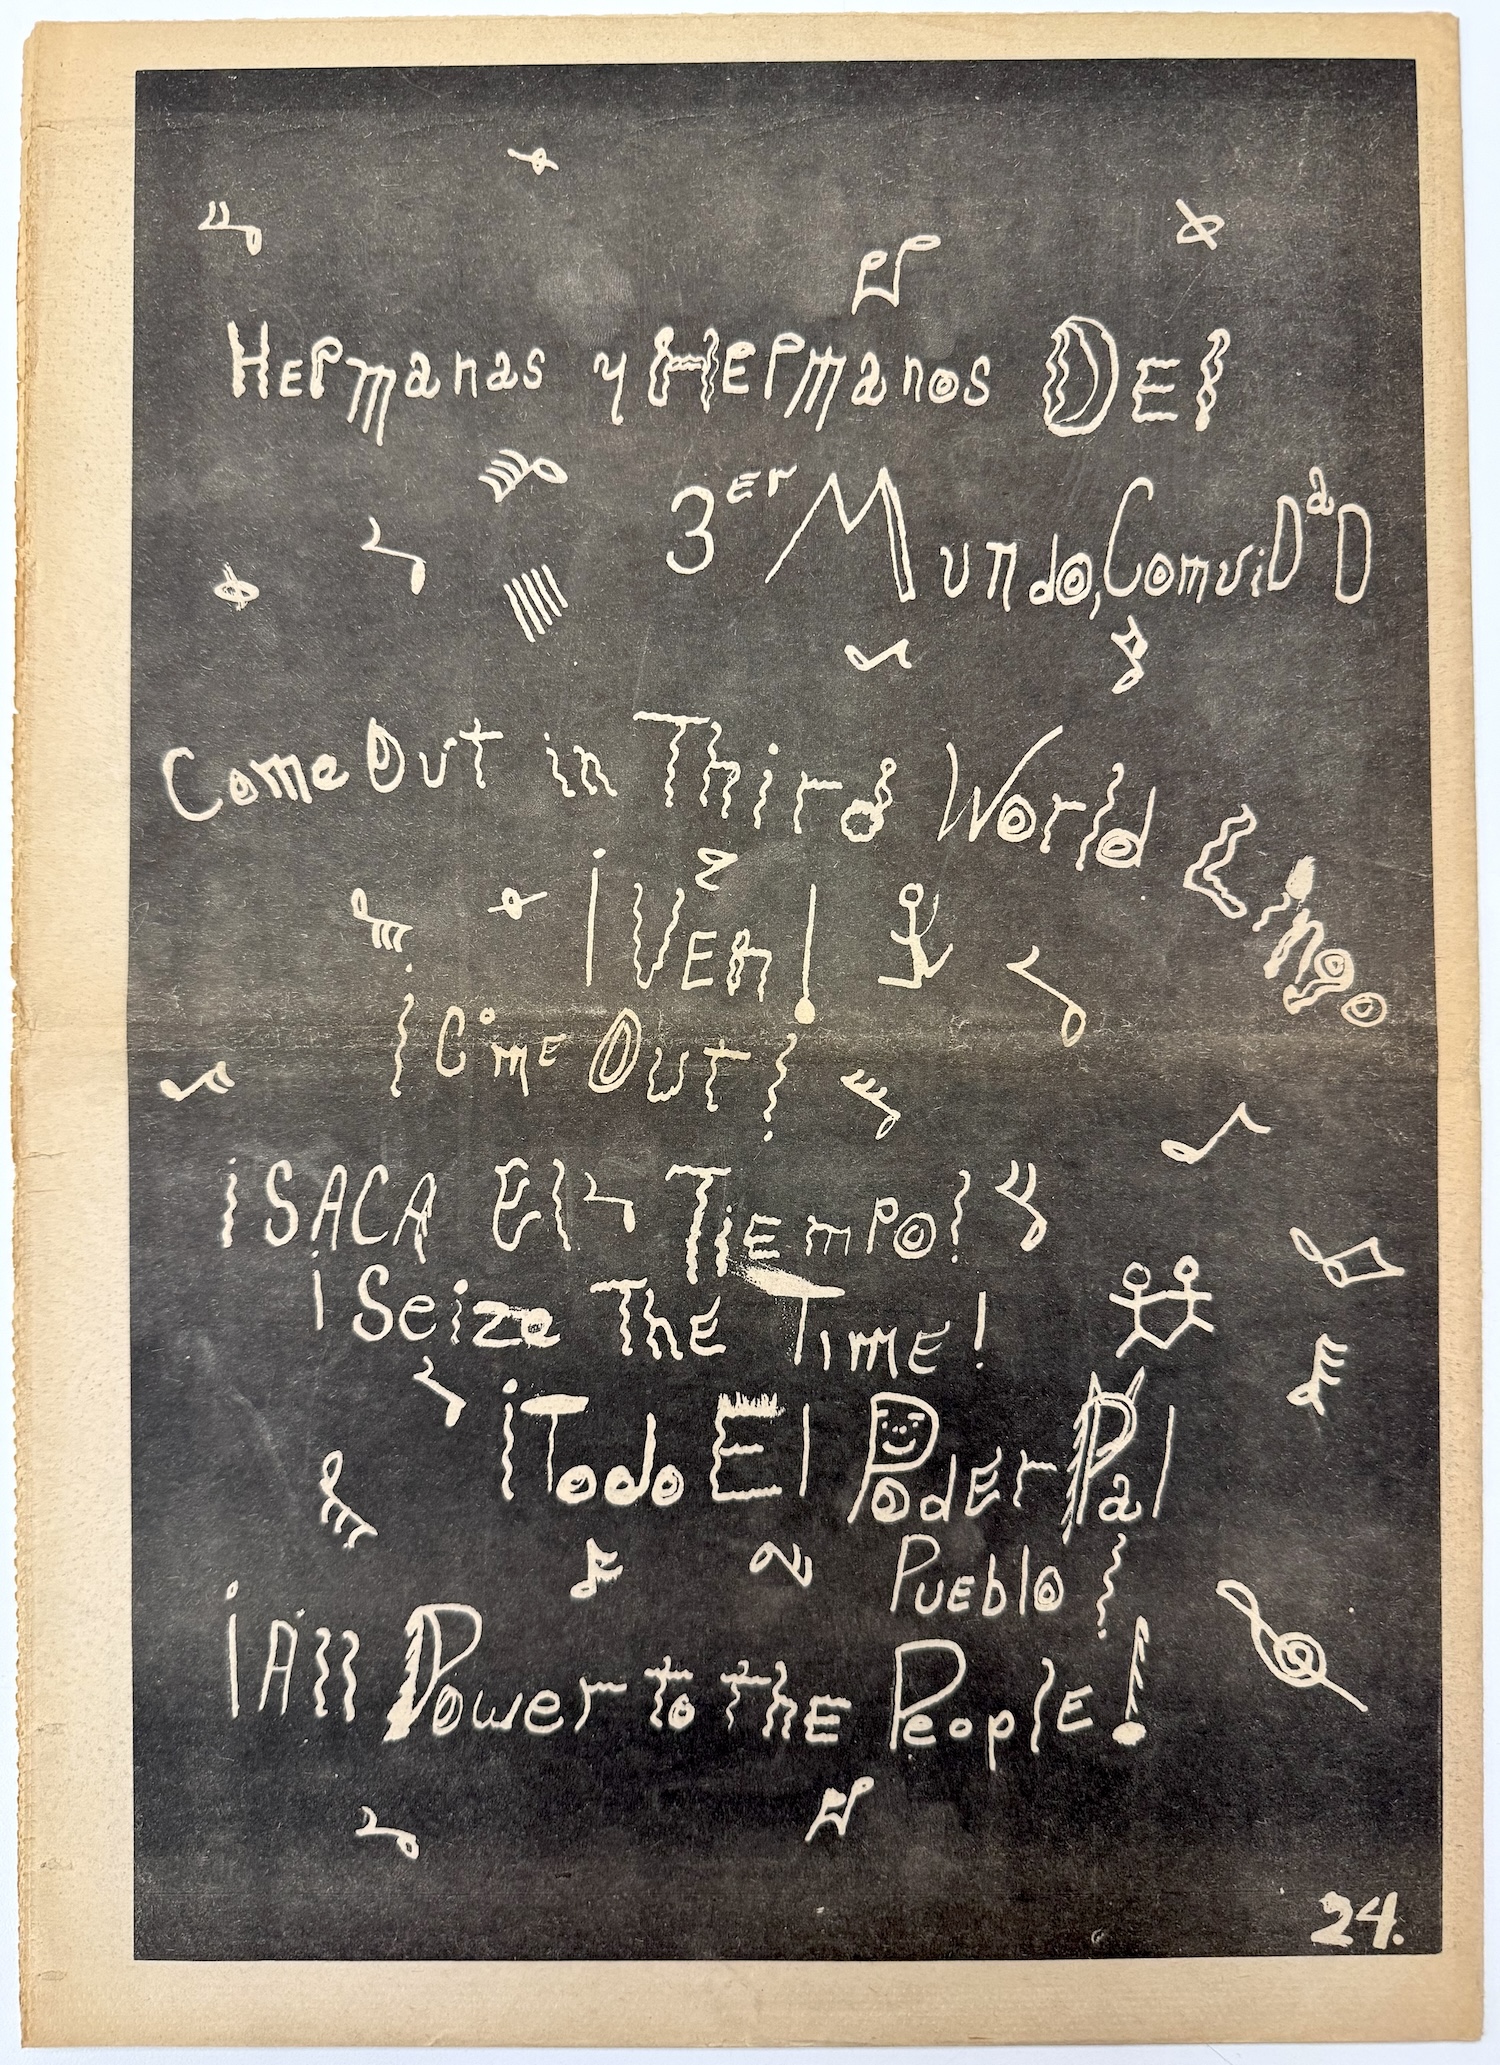 Hermanas y Hermanos Del
3er Mundo, ComuniDaD
Come Out in Third World Lingo
¡Ven!
¡Come Out!
¡SACA El Tiempo!
¡Seize The Time!
¡Todo El Poder Pal
Pueblo!
¡All Power to the People!
24.